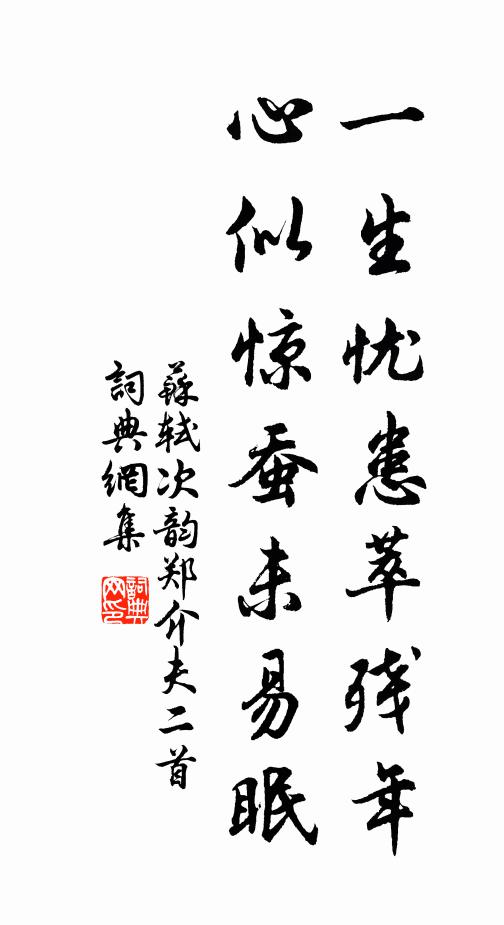 一生忧患萃残年
心似惊蚕未易眠
蘇轼次韵郑介夫二首
詞典網集